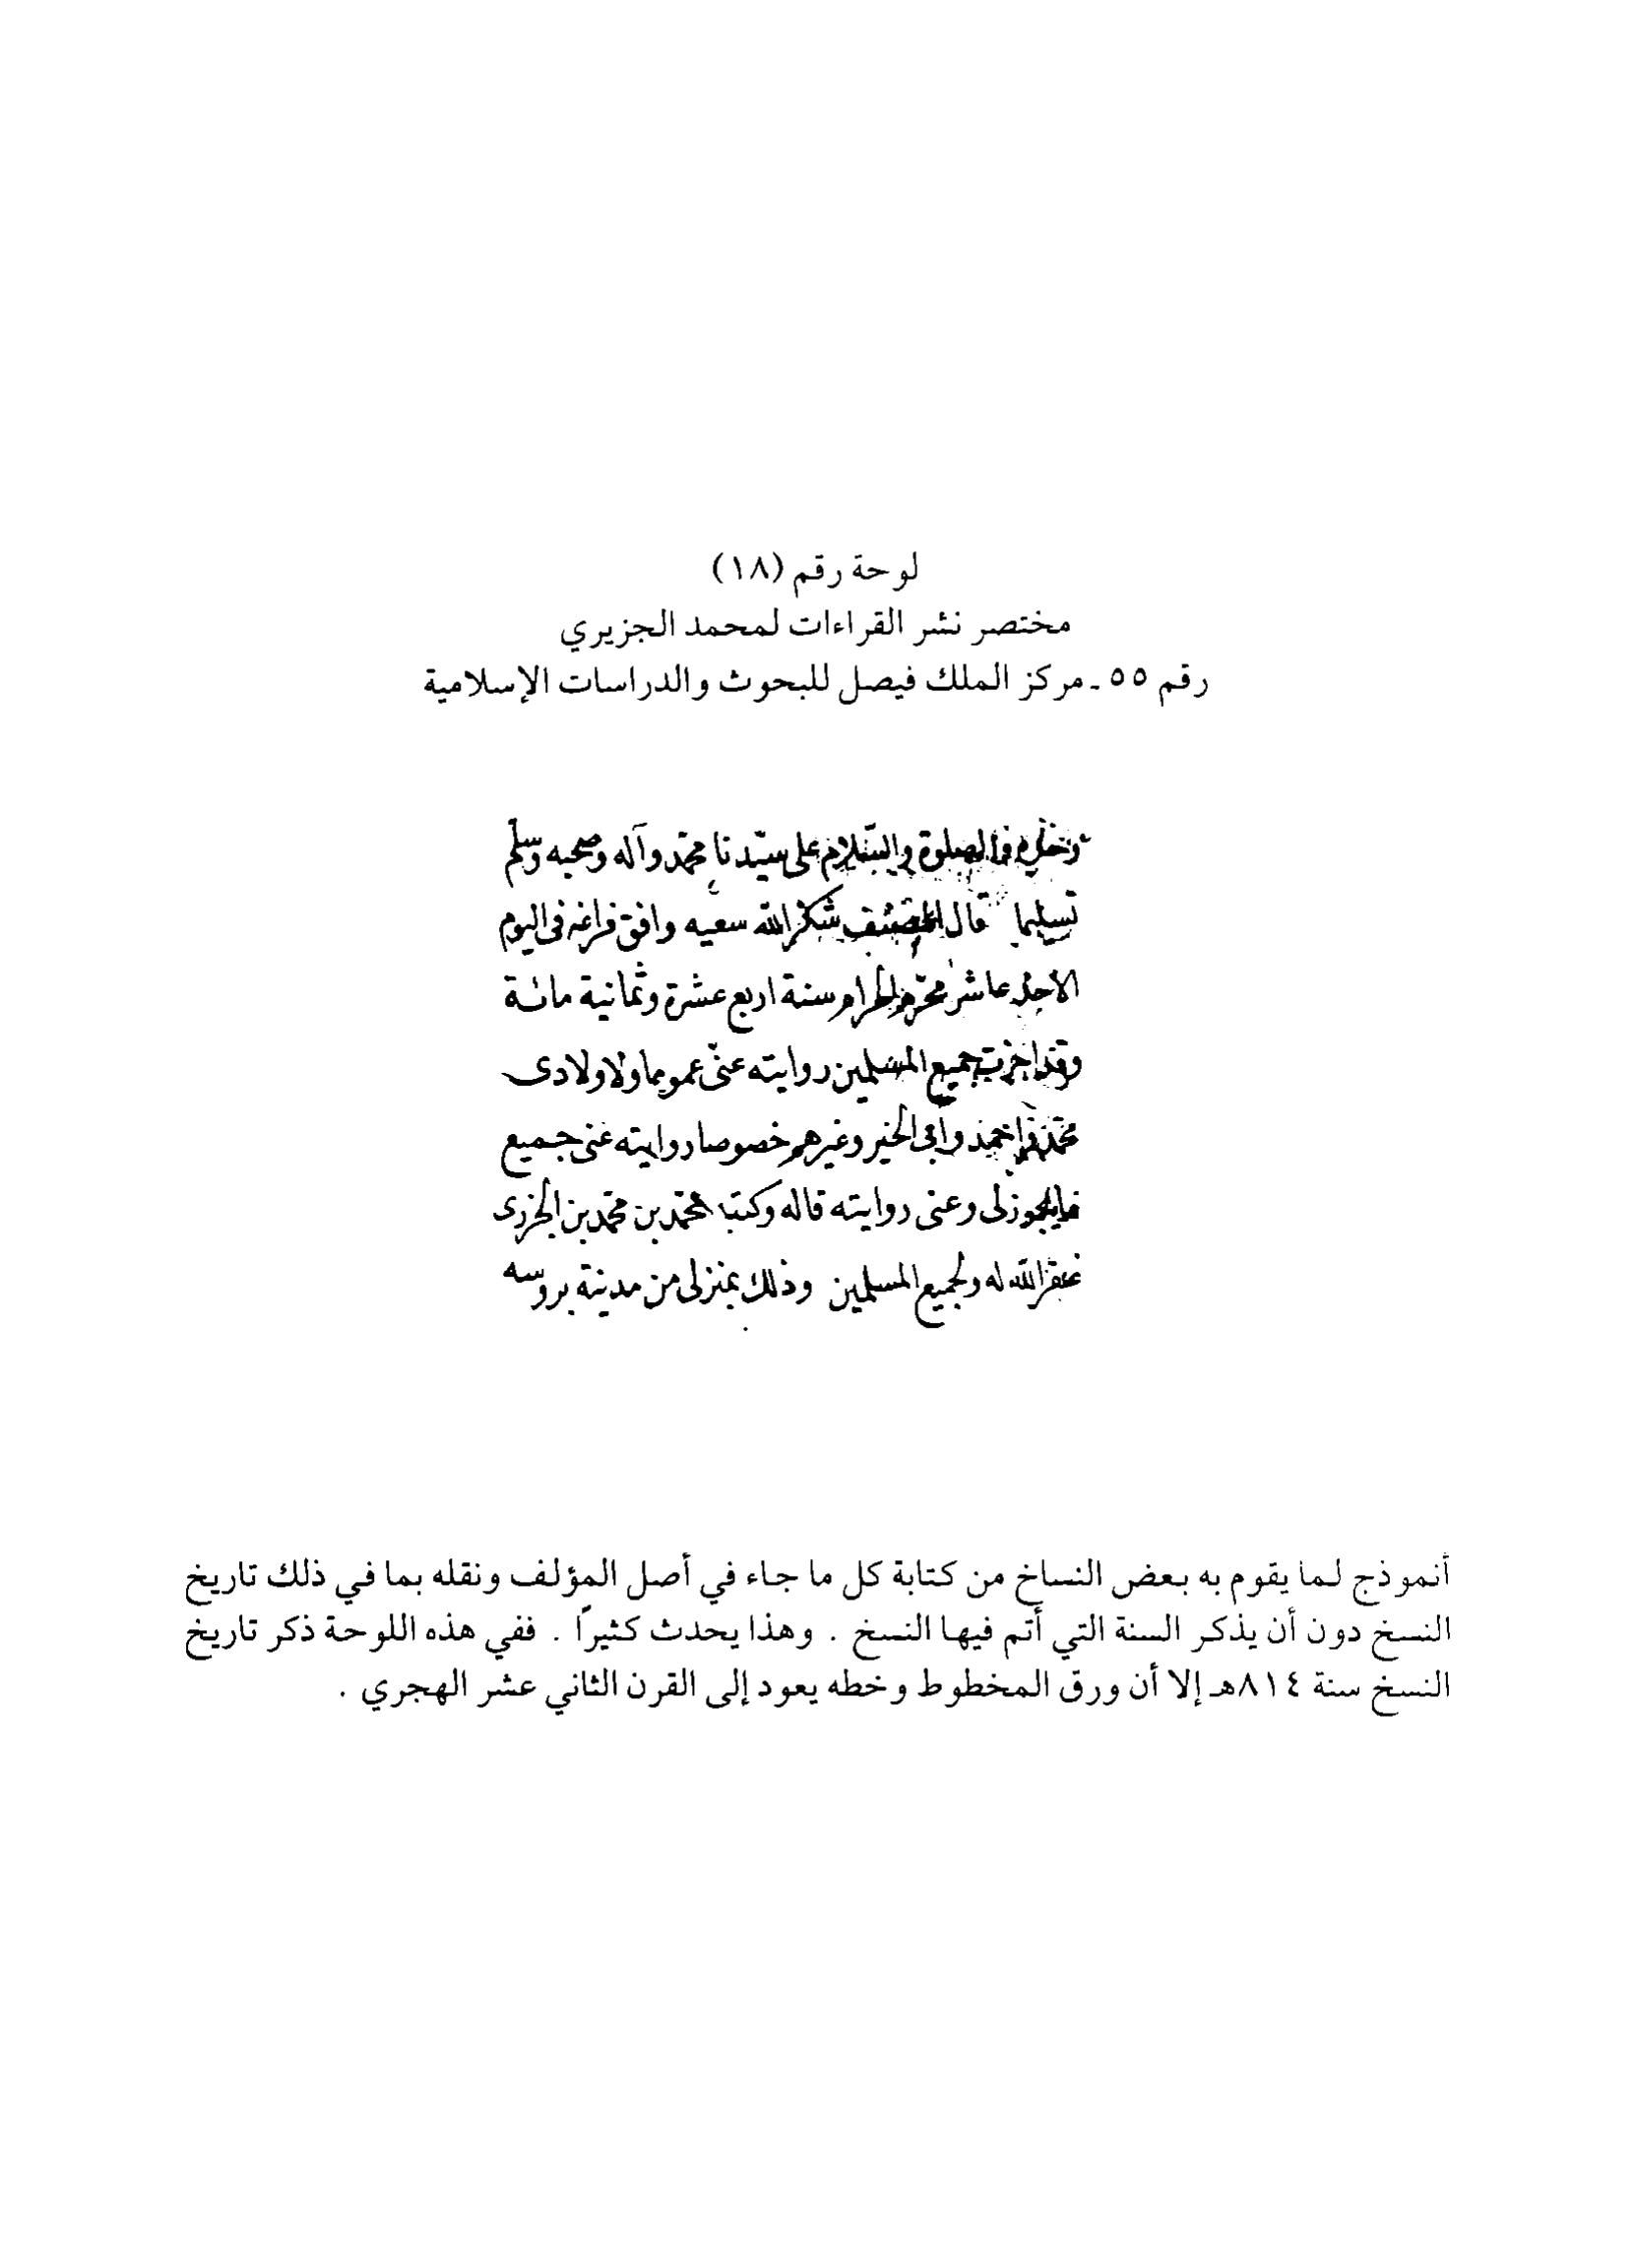 لوحة رقم (١٨)
مختصر نشر القراءات لمحمد الجزيري
رقم ٥٥ ـ مركز الملك فيصل للبحوث والدراسات الإسلامية
والصلوة والسّلام على سيّدنا محمّد وآله وصحبه وسلّم
تسليما قال المصنف شكر الله سعيه وافق فراغه فى اليوم
الاحد عاشر محرّم الحرام سنة اربع عشرة وثمانية مائة
وقد اجزت جميع المسلمين روايته عنّى عموما ولاولادى
محمّد واحمد وابى الخير وغيرهم خصوصا روايته عنى جميع
ما يجوز لى وعنى روايته قاله وكتبه محمّد بن محمّد بن الجزرى
غفر الله له ولجميع المسلمين وذلك بمنزلى من مدينة بروسه
أنموذج لما يقوم به بعض النساخ من كتابة كل ما جاء في أصل المؤلف ونقله بما في ذلك تاريخ
النسخ دون أن يذكر السنة التي أتم فيها النسخ . وهذا يحدث كثيرًا . ففي هذه اللوحة ذكر تاريخ
النسخ سنة ٨١٤هـ إلا أن ورق المخطوط وخطه يعود إلى القرن الثاني عشر الهجري .